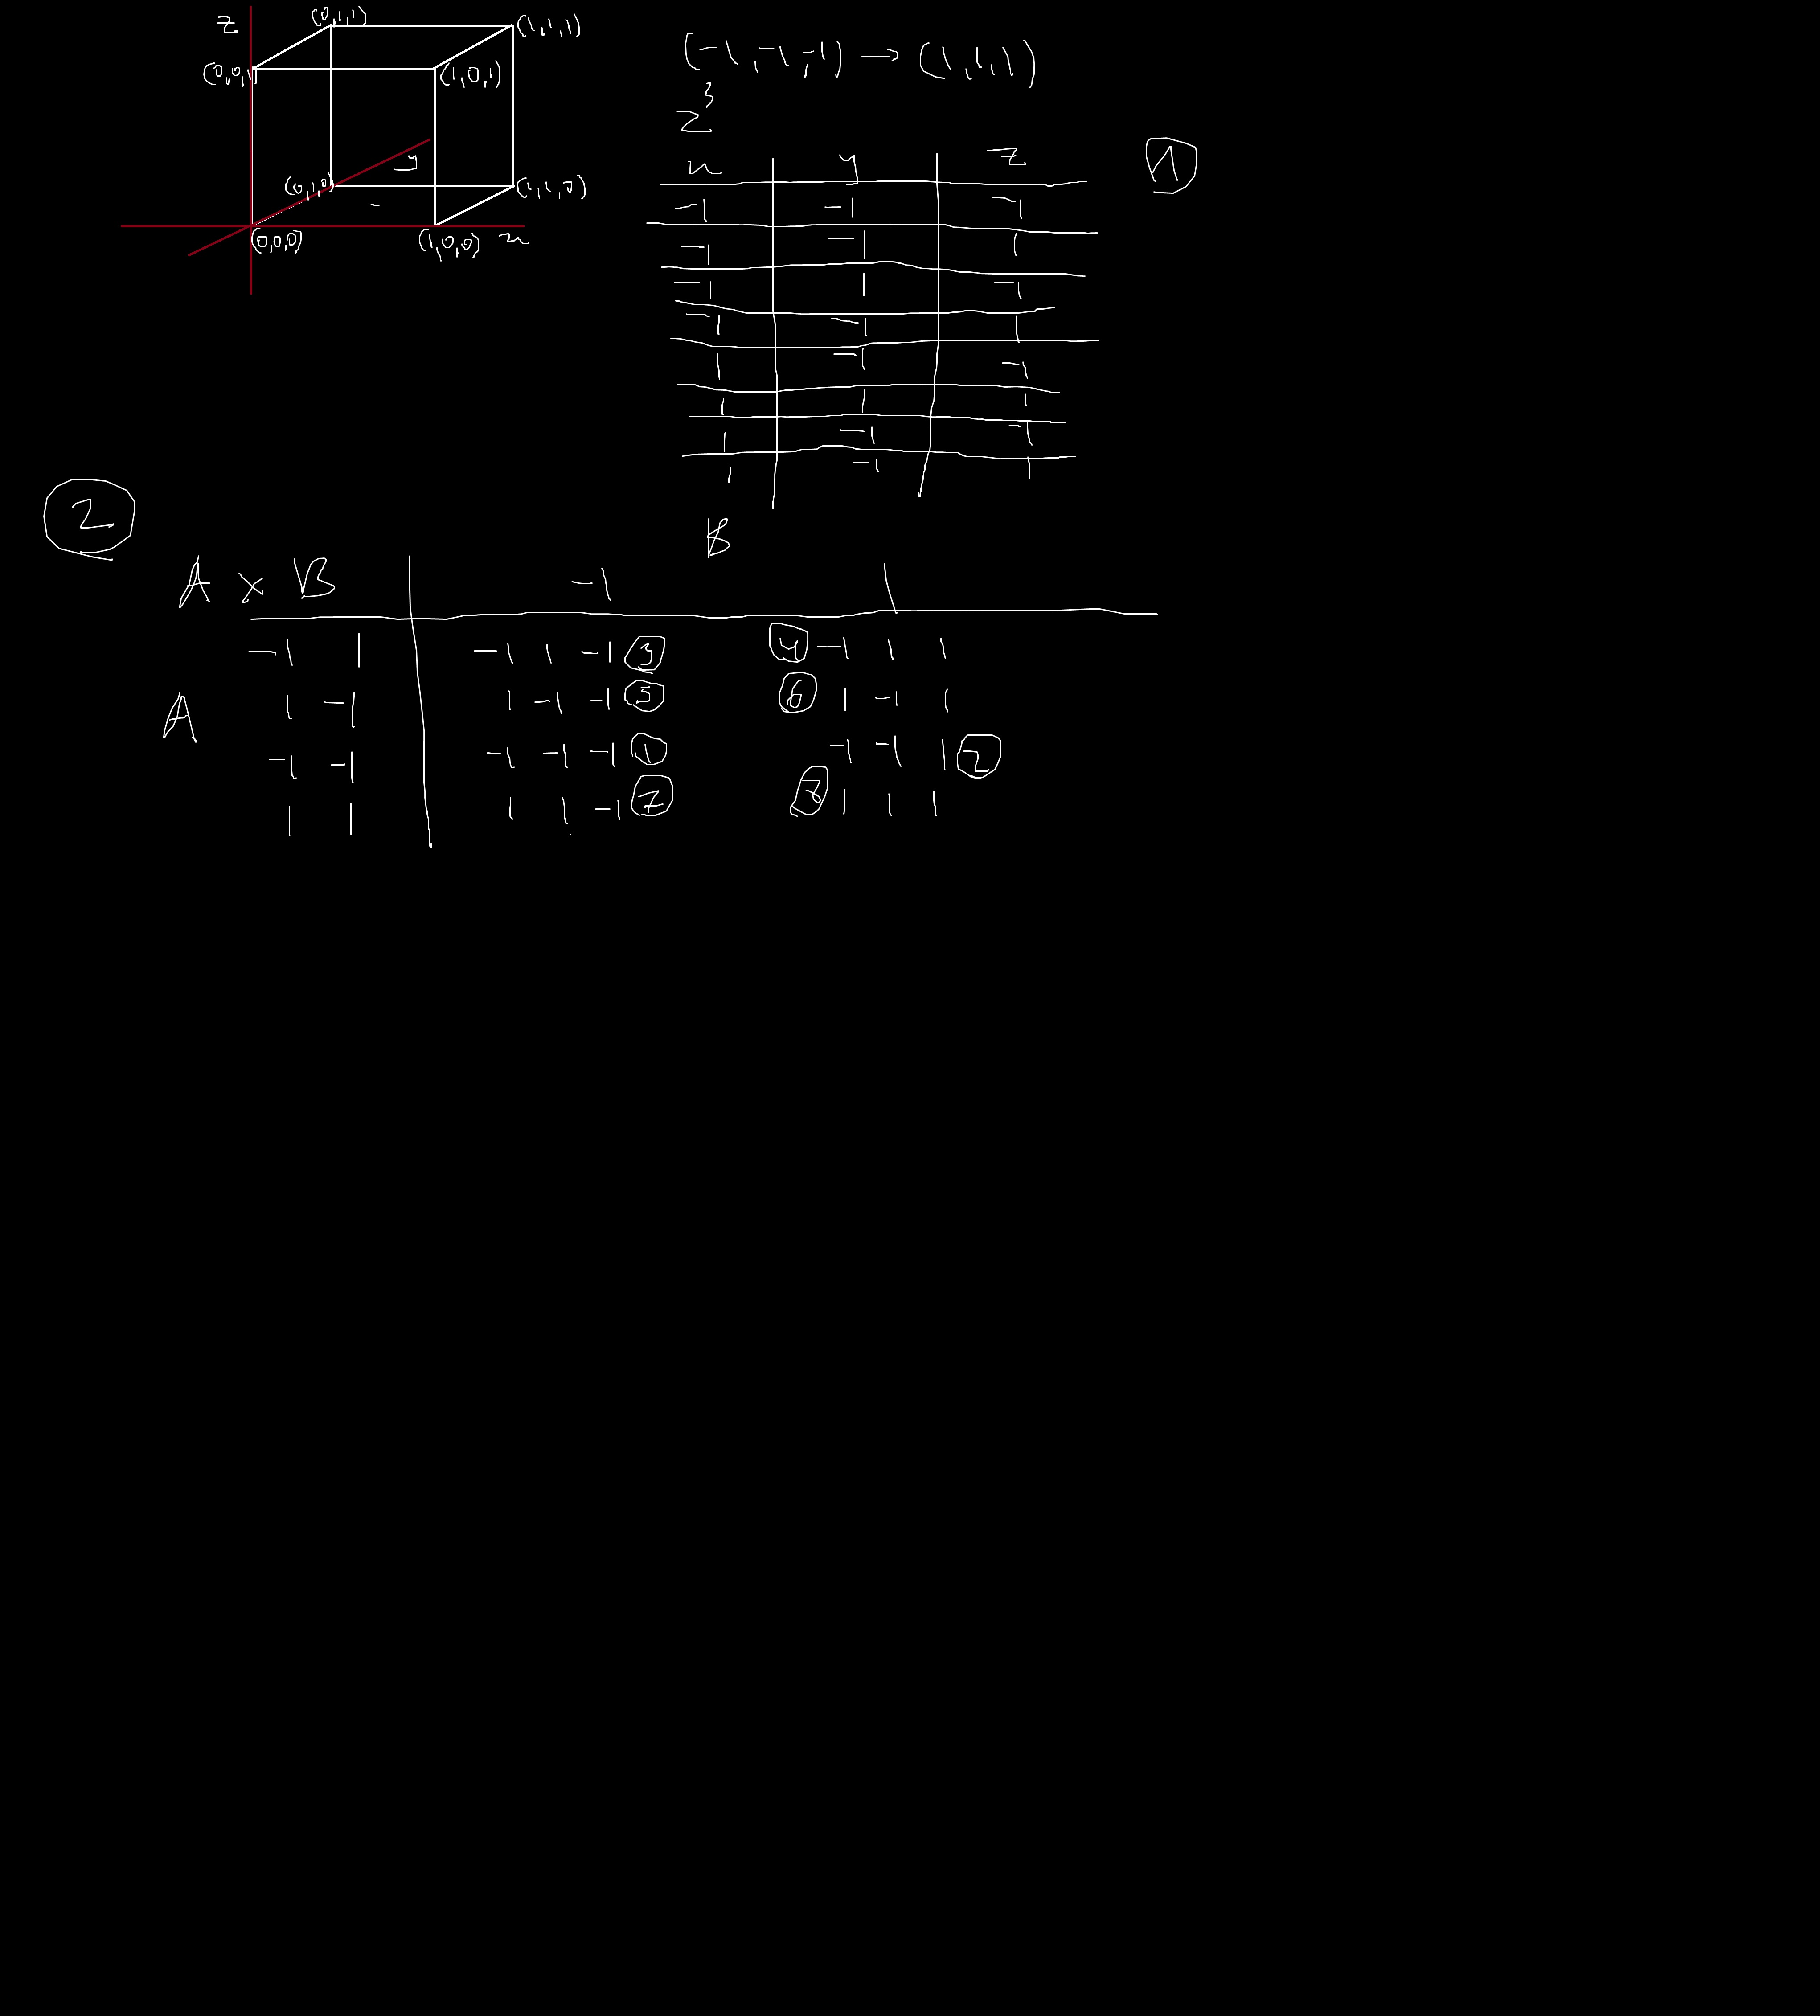 z (0,1,1) (1,1,1)
(0,0,1) (1,0,1)
y
(0,1,0) (1,1,0)
(0,0,0) (1,0,0) x
(-1,-1,-1) → (1,1,1)
2³
x y z
-1 -1 -1
-1 -1 1
-1 1 -1
-1 -1 1
1 -1 -1
1 1 1
1 -1 -1
1 -1 1
1
2
B
A × B -1 1
-1 1 -1 1 -1 3 4 -1 1 1
1 -1 1 -1 -1 5 6 1 -1 1
A
-1 -1 -1 -1 -1 1 -1 -1 1 2
1 1 1 1 -1 7 8 1 1 1